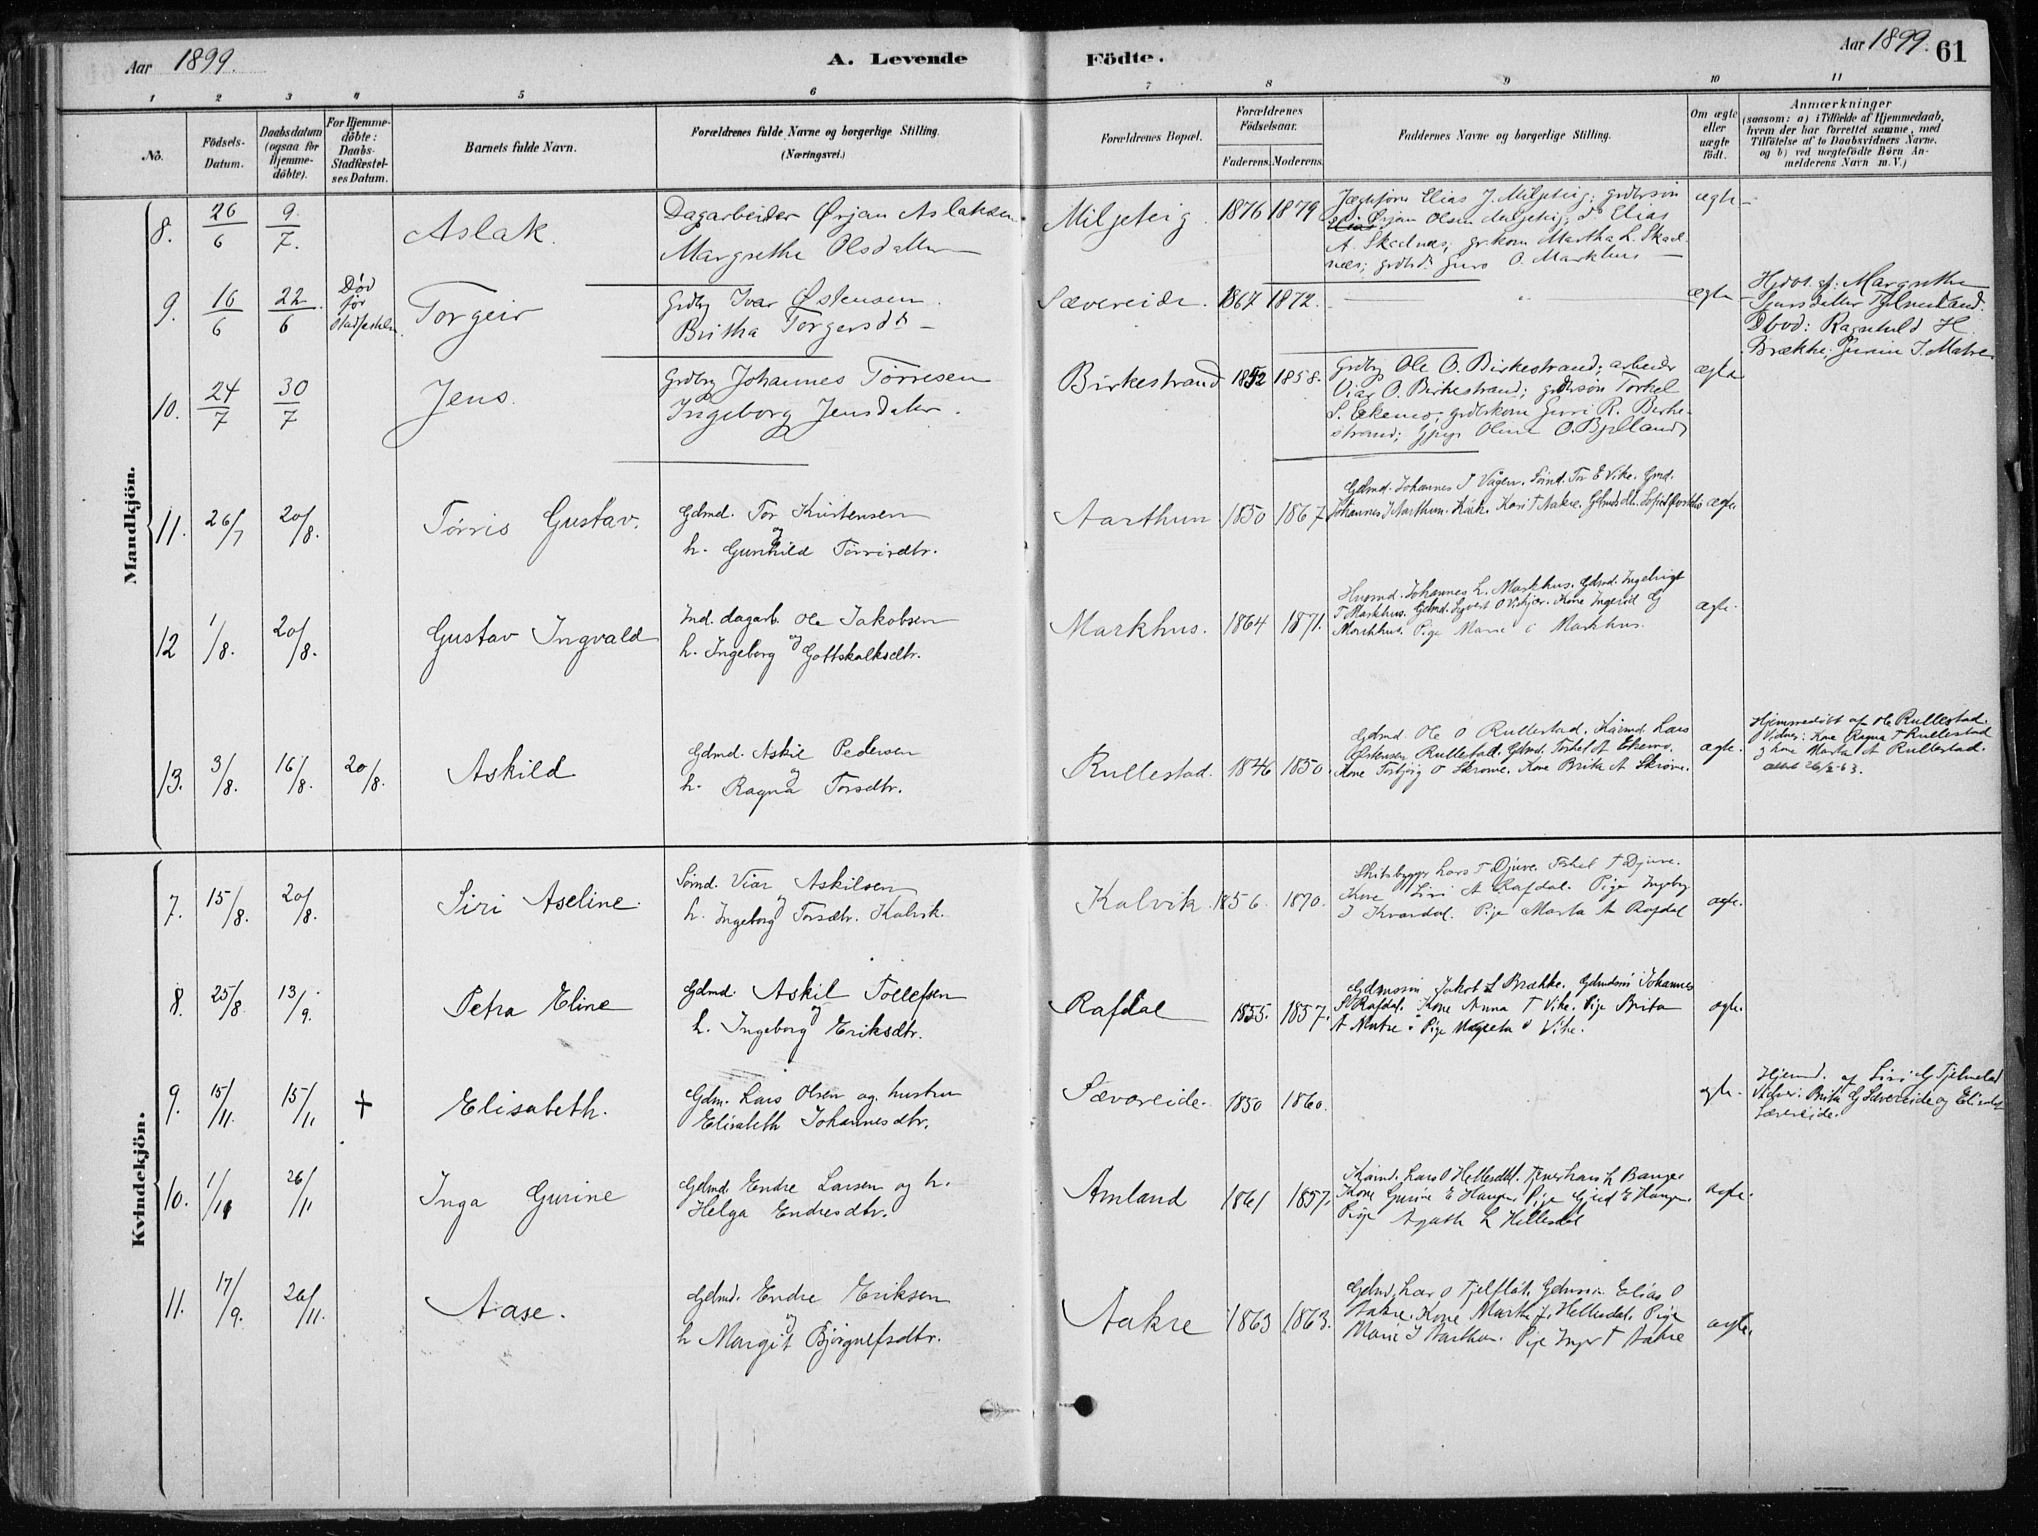 Aar 1899.
A. Levende Födte.
Aar 1899. 61
1 2 3 4 5 6 7 8 9 10 11
No.
Födsels-
Datum.
Daabsdatum
(ogsaa for
Hjemme-
döbte).
For Hjemme-
döbte:
Daabs-
Stadfæstel-
ses Datum.
Barnets fulde Navn.
Forældrenes fulde Navne og borgerlige Stilling.
(Næringsvei.)
Forældrenes Bopæl.
Forældrenes
Födselsaar.
Faderens. Moderens.
Faddernes Navne og borgerlige Stilling.
Om ægte
eller
uægte
födt.
Anmærkninger
(saasom: a) i Tilfælde af Hjemmedaab,
hvem der har forrettet samme, med
Tilföielse af to Daabsvidners Navne,
og b) ved uægtefödte Börn An-
melderens Navn m. V.)
Mandkjön.
8. 26/6 9/7. Aslak.
Dagarbeider Ørjan Aslaksen
Margrethe Olsdatter
Miljeteig 1876 1879
Elias J. Miljeteig; grdbrsøn
Ørjan Olsen Miljeteig, do Elias
A. Skaalnæs; gr.kone Martha L. Skaal-
næs; Guro O. Markhus
ægte
9. 16/6 22/6
Død
før
Stadfæstelsen.
Torgeir
Grdbr Ivar Østensen.
Britha Torgersdr
Sævereide. 1867 1872.
ægte
Hjdøt. af Margrethe
Dbvd: Ragnhild H.
Brække; J. Matre
10. 24/7 30/7 Jens.
Grdbr Johannes Tørresen
Ingeborg Jensdatter.
Birkestrand 1852 1858.
Grdbr Ole O. Birkestrand; arbeider
O. Birkestrand; grdbrsøn Torkel
S. Ekemo; grdbrkone R. Birke-
strand; pige Oline O. Bjelland
ægte
11. 26/7 20/8. Tørris Gustav.
Gdmd. Tor Kristensen
og
h. Gunhild Tørrisdtr.
Aarthun 1850 1867
Gdmd. Johannes T Vågen. Tor E Vike. Gmd.
Johannes J Aarthun. Kari T Aakre.
ægte
12 1/8. 20/8. Gustav Ingvald
Ind. dagarb. Ole Jakobsen
og
h. Ingeborg Gottskalksdtr.
Markhus. 1864 1871.
Husmd. Johannes L. Markhus. Gdmd. Ingebrigt
T Markhus. Gdmd. Sjvert O Kone Ingerid G
Markhus. Pige Marie Markhus.
ægte.
13. 3/8. 16/8. 20/8. Askild
Gdmd. Askil Pedersen
og
h. Ragna Torsdtr.
Rullestad. 1846 1850.
Gdmd Ole O Rullestad. Lars
Østensen Rullestad. Gdmd. Torkel A Ekemo.
Kone Torbjørg O Skromme. Kone Brita A Skromme.
ægte.
Hjemmedøbt af Ole Rullestad.
Vidner: Kone Ragna T Rullestad
og Kone Marta A Rullestad.
Kvindekjön.
7. 15/8. 20/8. Siri Aseline.
Viar Askilsen
og
h. Ingeborg Torsdtr. Kalvik.
Kalvik. 1856. 1870.
Skibsbygger Lars T Djuve. Torkel T Djuve.
Kone Siri A Rafdal. Pige Ingeborg
J Kvardal. Pige Marta A Rafdal
ægte.
8. 25/8 13/9. Petra Eline
Gdmd. Askil Tollefsen
og
h. Ingeborg Eriksdtr.
Rafdal 1855. 1857.
Gdmssøn Jakob L Brække. Gdmdssøn Johannes
S Rafdal. Kone Anna T Vike. Pige Brita
A Matre. Pige Magreta Vike.
ægte.
9. 15/11. 15/11 + Elisabeth.
Gdm. Lars Olsen og hustru
Elisabeth Johannesdtr.
Sævareide. 1850 1860.
ægte.
Hjemd. af Siri G Tjelmeland
Vidner: Brita G Sævereide og
Sævereide.
10. 1/11 26/11 Inga Gurine
Gdmd. Endre Larsen og h.
Helga Endresdtr.
Amland 1861 1857.
Lars O Hellesdal. L Bauge.
Kone Gurine E Haugen. Pige E Haugen.
Pige Agathe L Hellesdal
ægte.
11. 17/9. 26/11. Aase.
Gdmd. Endre Eriksen
og
h Margit Bjørgnefsdtr.
Aakre 1863 1863.
Gdmd. Lars O Tjelflåt. Gdmssøn Elias O
Aakre. Kone Martha J. Hellesdal. Pige
Marie J Aarthun. Pige Inger T Aakre
ægte.